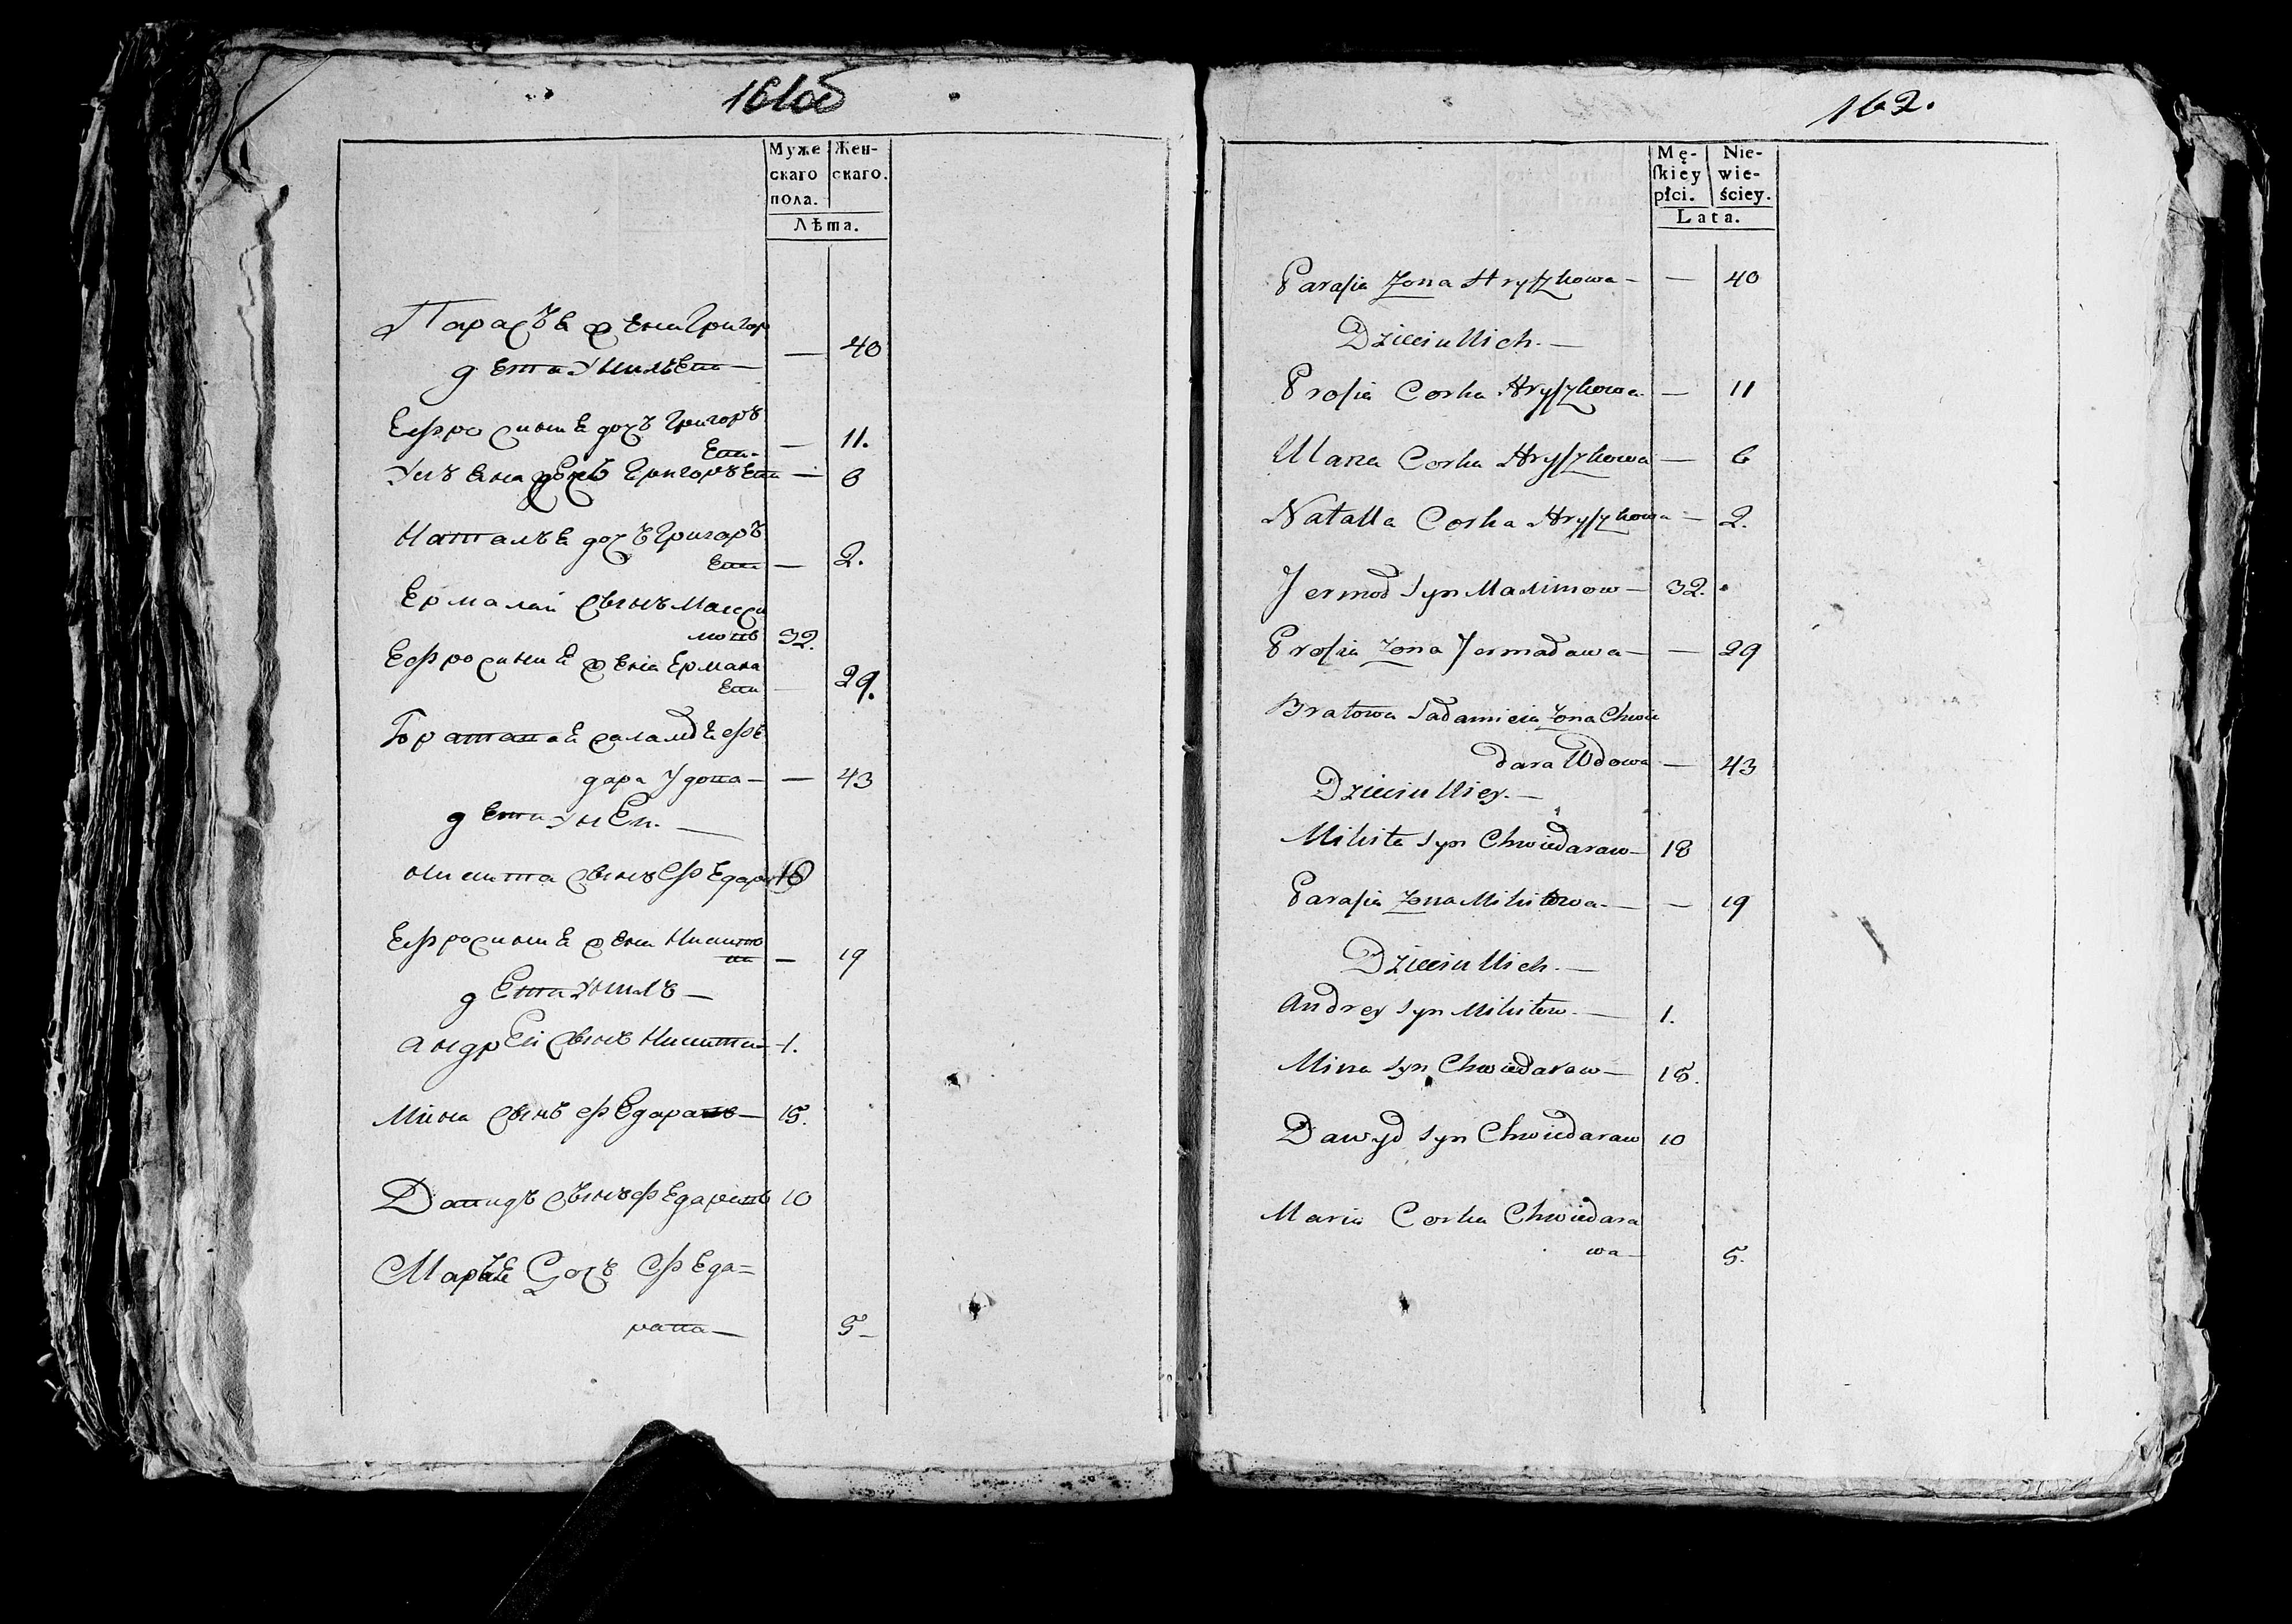 161об
Муже
скаго
пола.
Жен-
скаго.
Лѣта.
Парасъя жена Григор
— 40
дети У нихъ
Ефросиния дочъ Григоръ
ева — — 11.
Улъяна дочъ Григоръева — 6
Наталъя дочъ Григаръ
ева — 2.
Ермалай сынъ Макси
мовъ 32.
Ефросиния жена Ермала
ева — 29.
Братавая саламея фе
дара Удова — — 43
дети У ней. —
Никита сынъ Федара 18
Ефросиния жена Никито
ва — 19
дети У нихъ —
Андрей сынъ Никитин 1.
Мина сынъ Федаравъ — 15.
Давидъ сынъ Федаравъ 10
Маръя дочъ Феда=
рава — 5 —
162.
Mę-
ſkiey
płci.
Nie-
wie-
ściey.
Lata.
Paraſia Zona Hryſzkowa — — 40
Dzieci u Nich. —
Proſia Corka Hryſzkowa — 11
Ulana Corka Hryſzkowa — 6
Natalla Corka Hryſzkowa — 2.
Jermoł Syn Maximow — 32.
Proſia Zona Jermaława — — 29
Bratowa Sałamieia Zona Chwie
dara Wdowa — 43
Dzieci u Niey. —
Mikita Syn Chwiedaraw — 18
Paraſia Zona Mikitowa — — 19
Dzieci u Nich. —
Andrey Syn Mikitow. — 1.
Mina Syn Chwiedaraw — 15.
Dawyd Syn Chwiedaraw 10
Maria Corka Chwiedara
wa — 5.